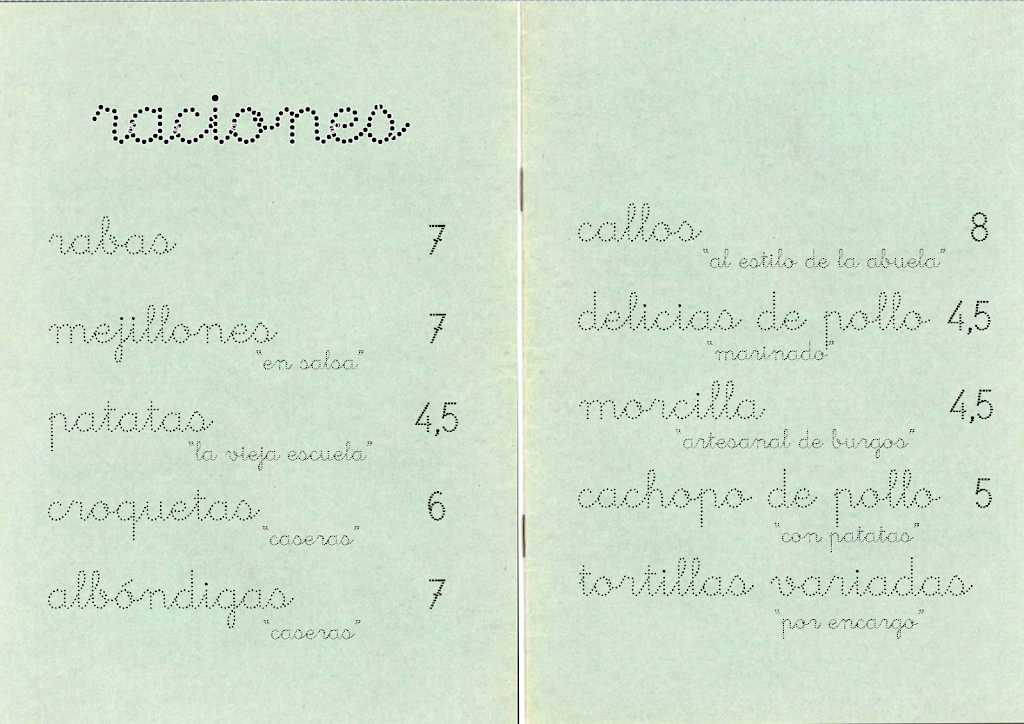 raciones
rabas 7
mejillones 7
"en salsa"
patatas 4,5
"la vieja escuela"
croquetas 6
"caseras"
albóndigas 7
"caseras"
callos 8
"al estilo de la abuela"
delicias de pollo 4,5
"marinado"
morcilla 4,5
"artesanal de burgos"
cachopo de pollo 5
"con patatas"
tortillas variadas
"por encargo"